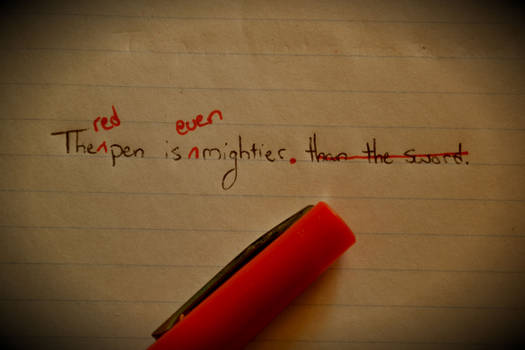 The red pen is even mightier. than the sword.